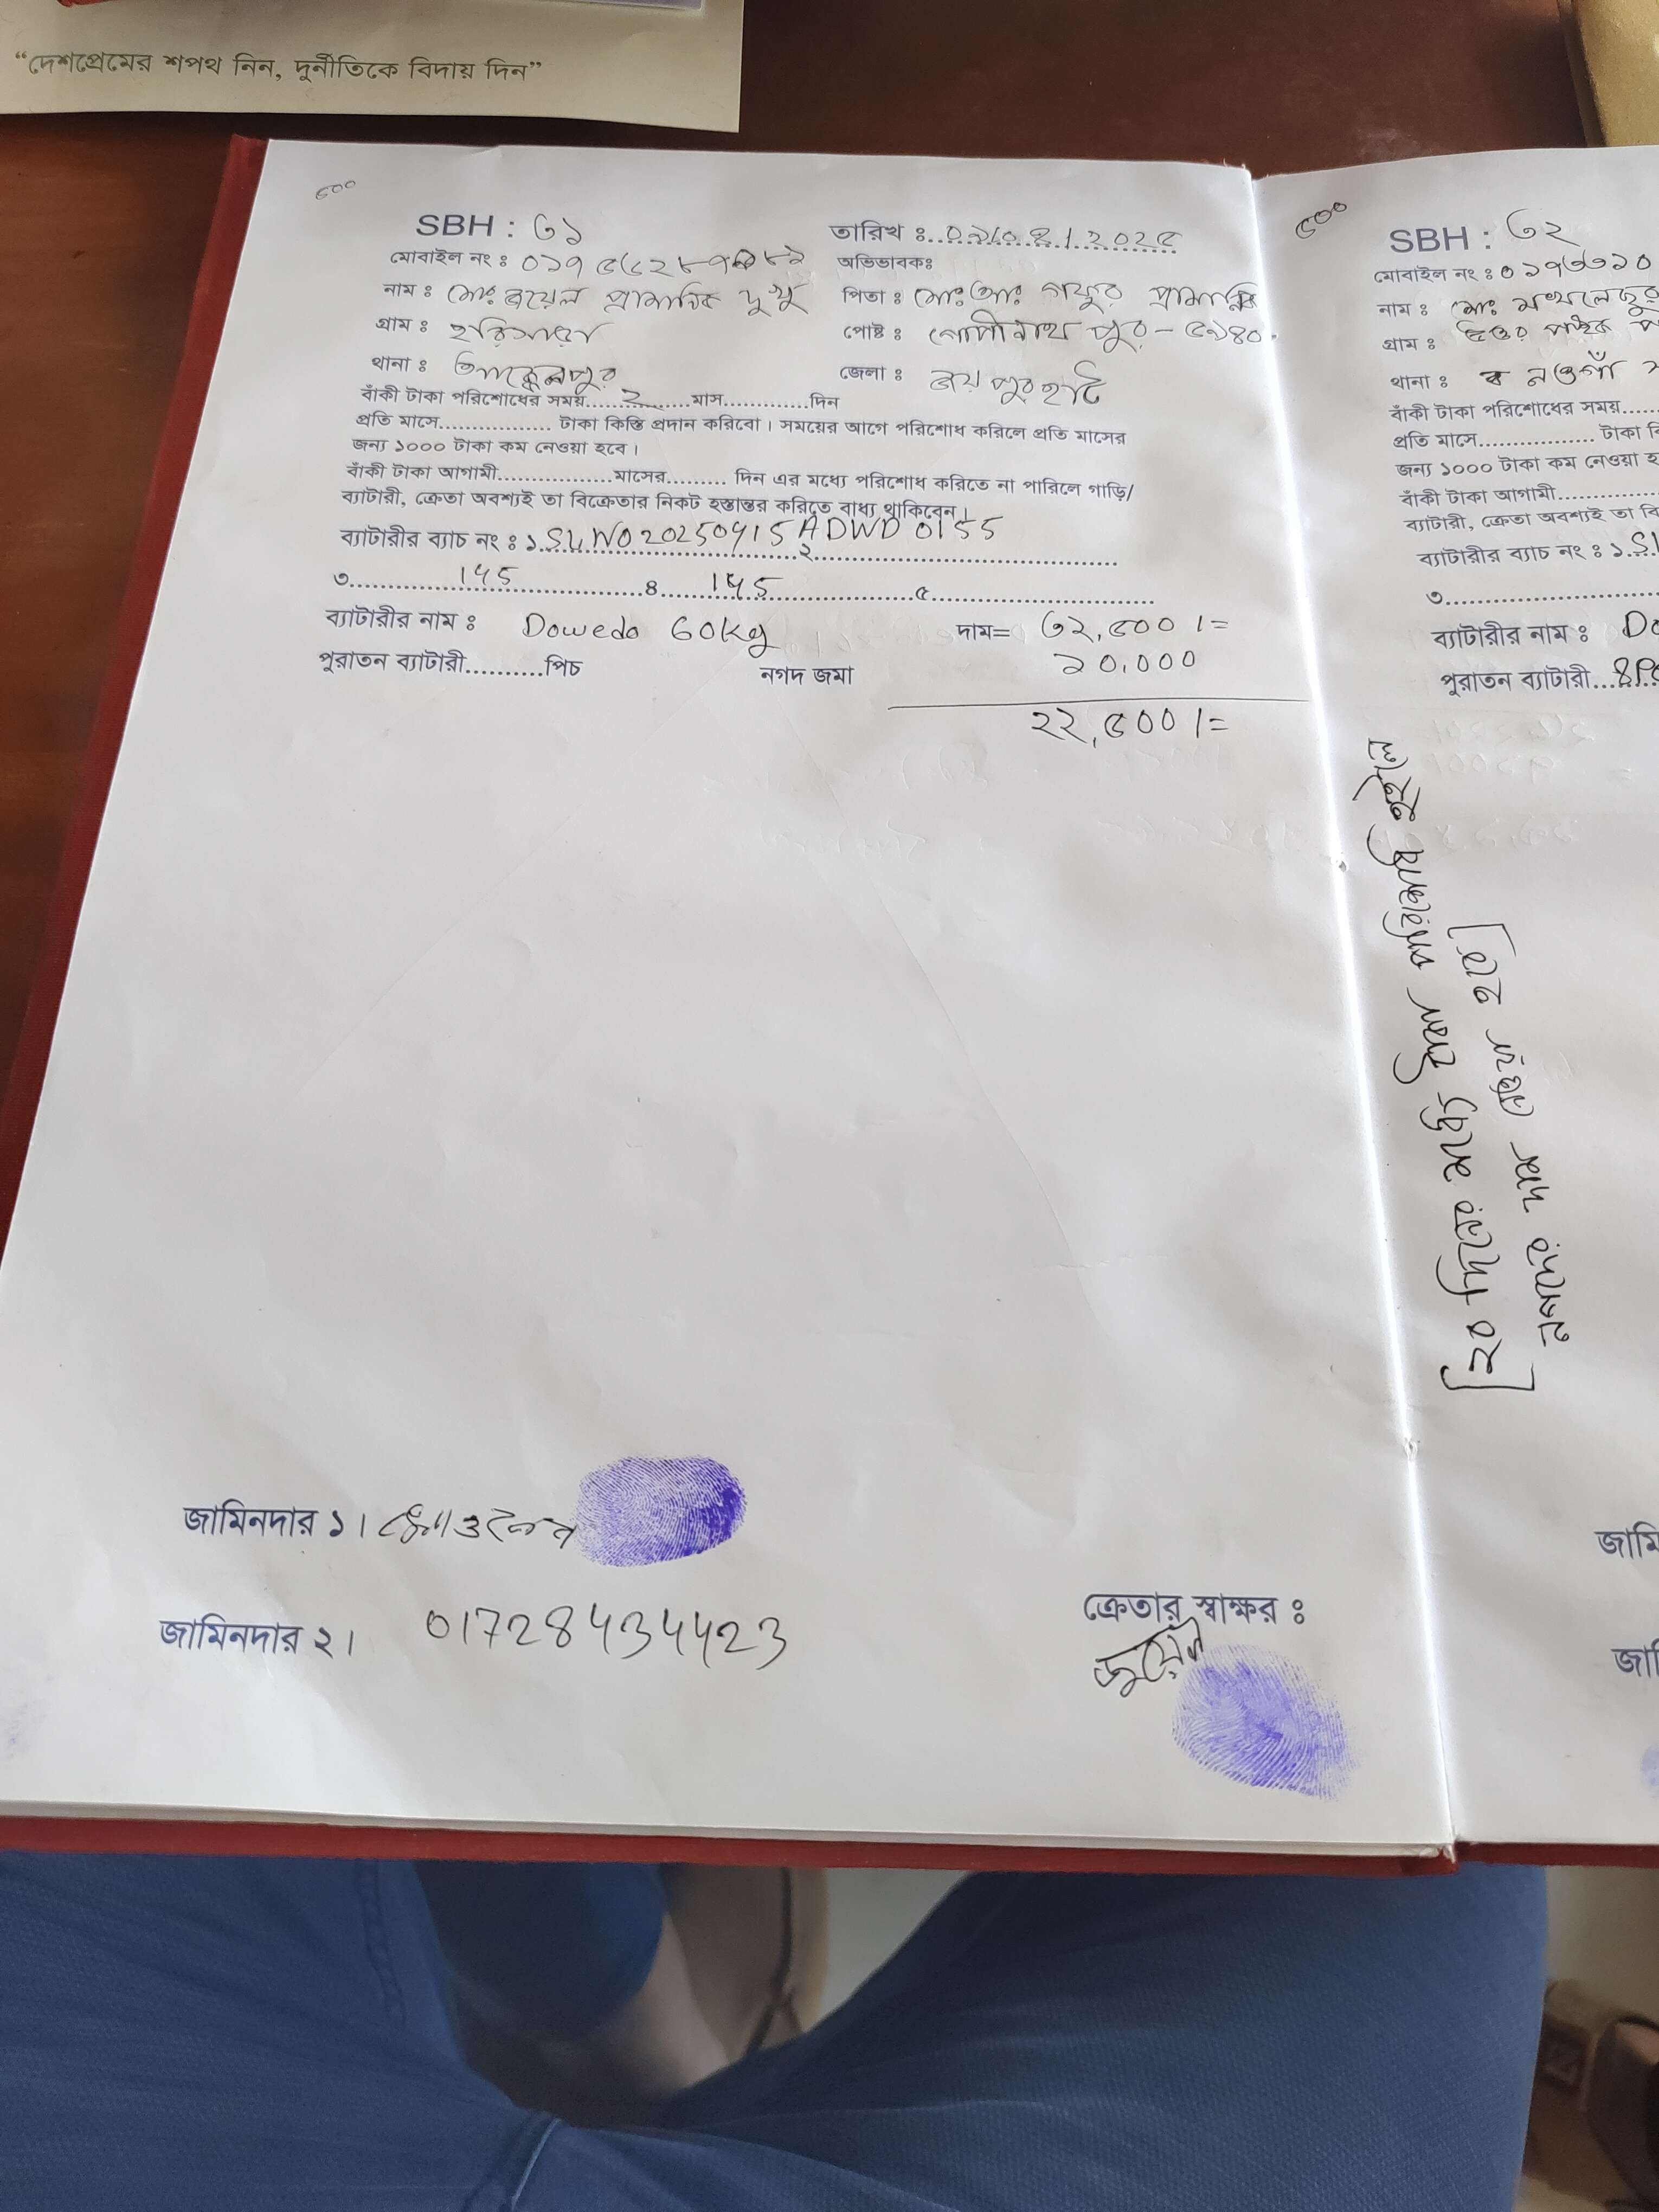 “দেশপ্রেমের শপথ নিন, দুর্নীতিকে বিদায় দিন”
৫০০
SBH : ৩১
তারিখ ঃ
মোবাইল নং ঃ
অভিভাবকঃ
নাম ঃ মোঃ জুয়েল প্রামানিক
পিতা ঃ মোঃ আঃ গফুর প্রামানিক
গ্রাম ঃ
পোষ্ট ঃ গোপীনাথ পুর - ৫৯৪০
থানা ঃ আক্কেলপুর
জেলা ঃ জয়পুরহাট
বাঁকী টাকা পরিশোধের সময়......২......মাস.............দিন
প্রতি মাসে................. টাকা কিস্তি প্রদান করিবো। সময়ের আগে পরিশোধ করিলে প্রতি মাসের
জন্য ১০০০ টাকা কম নেওয়া হবে।
বাঁকী টাকা আগামী.................মাসের......... দিন এর মধ্যে পরিশোধ করিতে না পারিলে গাড়ি/
ব্যাটারী, ক্রেতা অবশ্যই তা বিক্রেতার নিকট হস্তান্তর করিতে বাধ্য থাকিবেন।
ব্যাটারীর ব্যাচ নং ঃ ১. ADWD 0155 ২
৩ ৪ ৫
ব্যাটারীর নাম ঃ Dowedo 60kg
দাম= ৩২,৫০০/=
পুরাতন ব্যাটারী..........পিচ
নগদ জমা ১০,০০০
২২,৫০০/=
জামিনদার ১।
জামিনদার ২। 01728434423
ক্রেতার স্বাক্ষর ঃ
জুয়েল
৫০০
SBH : ৩২
মোবাইল নং ঃ
নাম ঃ মোঃ
গ্রাম ঃ
থানা ঃ নওগাঁ
বাঁকী টাকা পরিশোধের সময়......
প্রতি মাসে................. টাকা
জন্য ১০০০ টাকা কম নেওয়া
বাঁকী টাকা আগামী..............
ব্যাটারী, ক্রেতা অবশ্যই তা
ব্যাটারীর ব্যাচ নং ঃ ১.
৩
ব্যাটারীর নাম ঃ
পুরাতন ব্যাটারী...
[২০ দিনের মধ্যে টাকা পরিশোধ হইলে
নগদের দাম ধরা হবে]